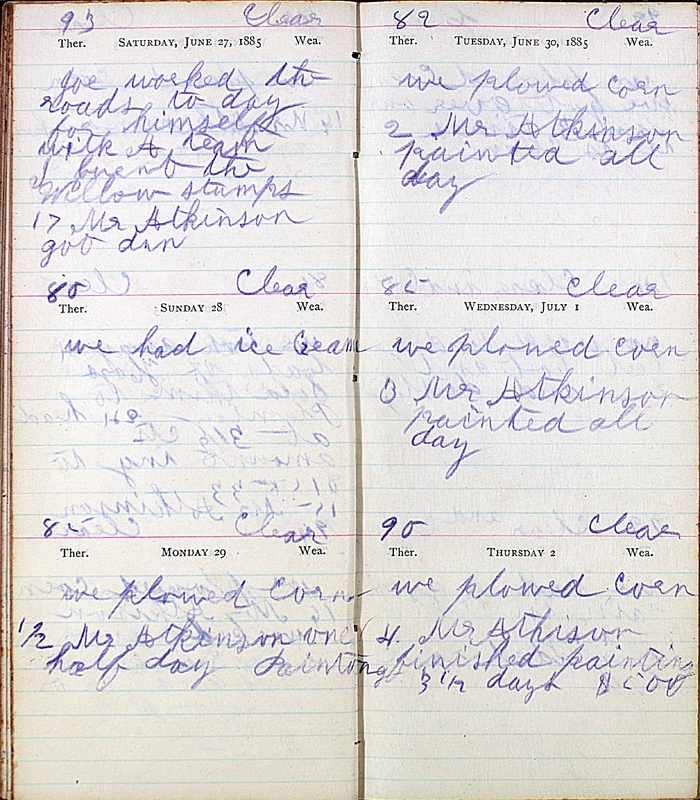 93 Clear
Ther. SATURDAY, JUNE 27, 1885 Wea.
Joe worked the
roads to day
for himself
with A team
I burnt the
Willow stumps
17 Mr Atkinson
got dun
80 Clear
Ther. SUNDAY 28 Wea.
we had ice Cream
85 Clear
Ther. MONDAY 29 Wea.
we plowed Corn
1/2 Mr Atkinson one
half day Paintong
82 Clear
Ther. TUESDAY, JUNE 30, 1885 Wea.
we plowed corn
2 Mr Atkinson
painted all
day
85 Clear
Ther. WEDNESDAY, JULY 1 Wea.
we plowed corn
3 Mr Atkinson
painted all
day
90 Clear
Ther. THURSDAY 2 Wea.
we plowed corn
4 Mr Athison
finished painting
3 1/2 days $5 00